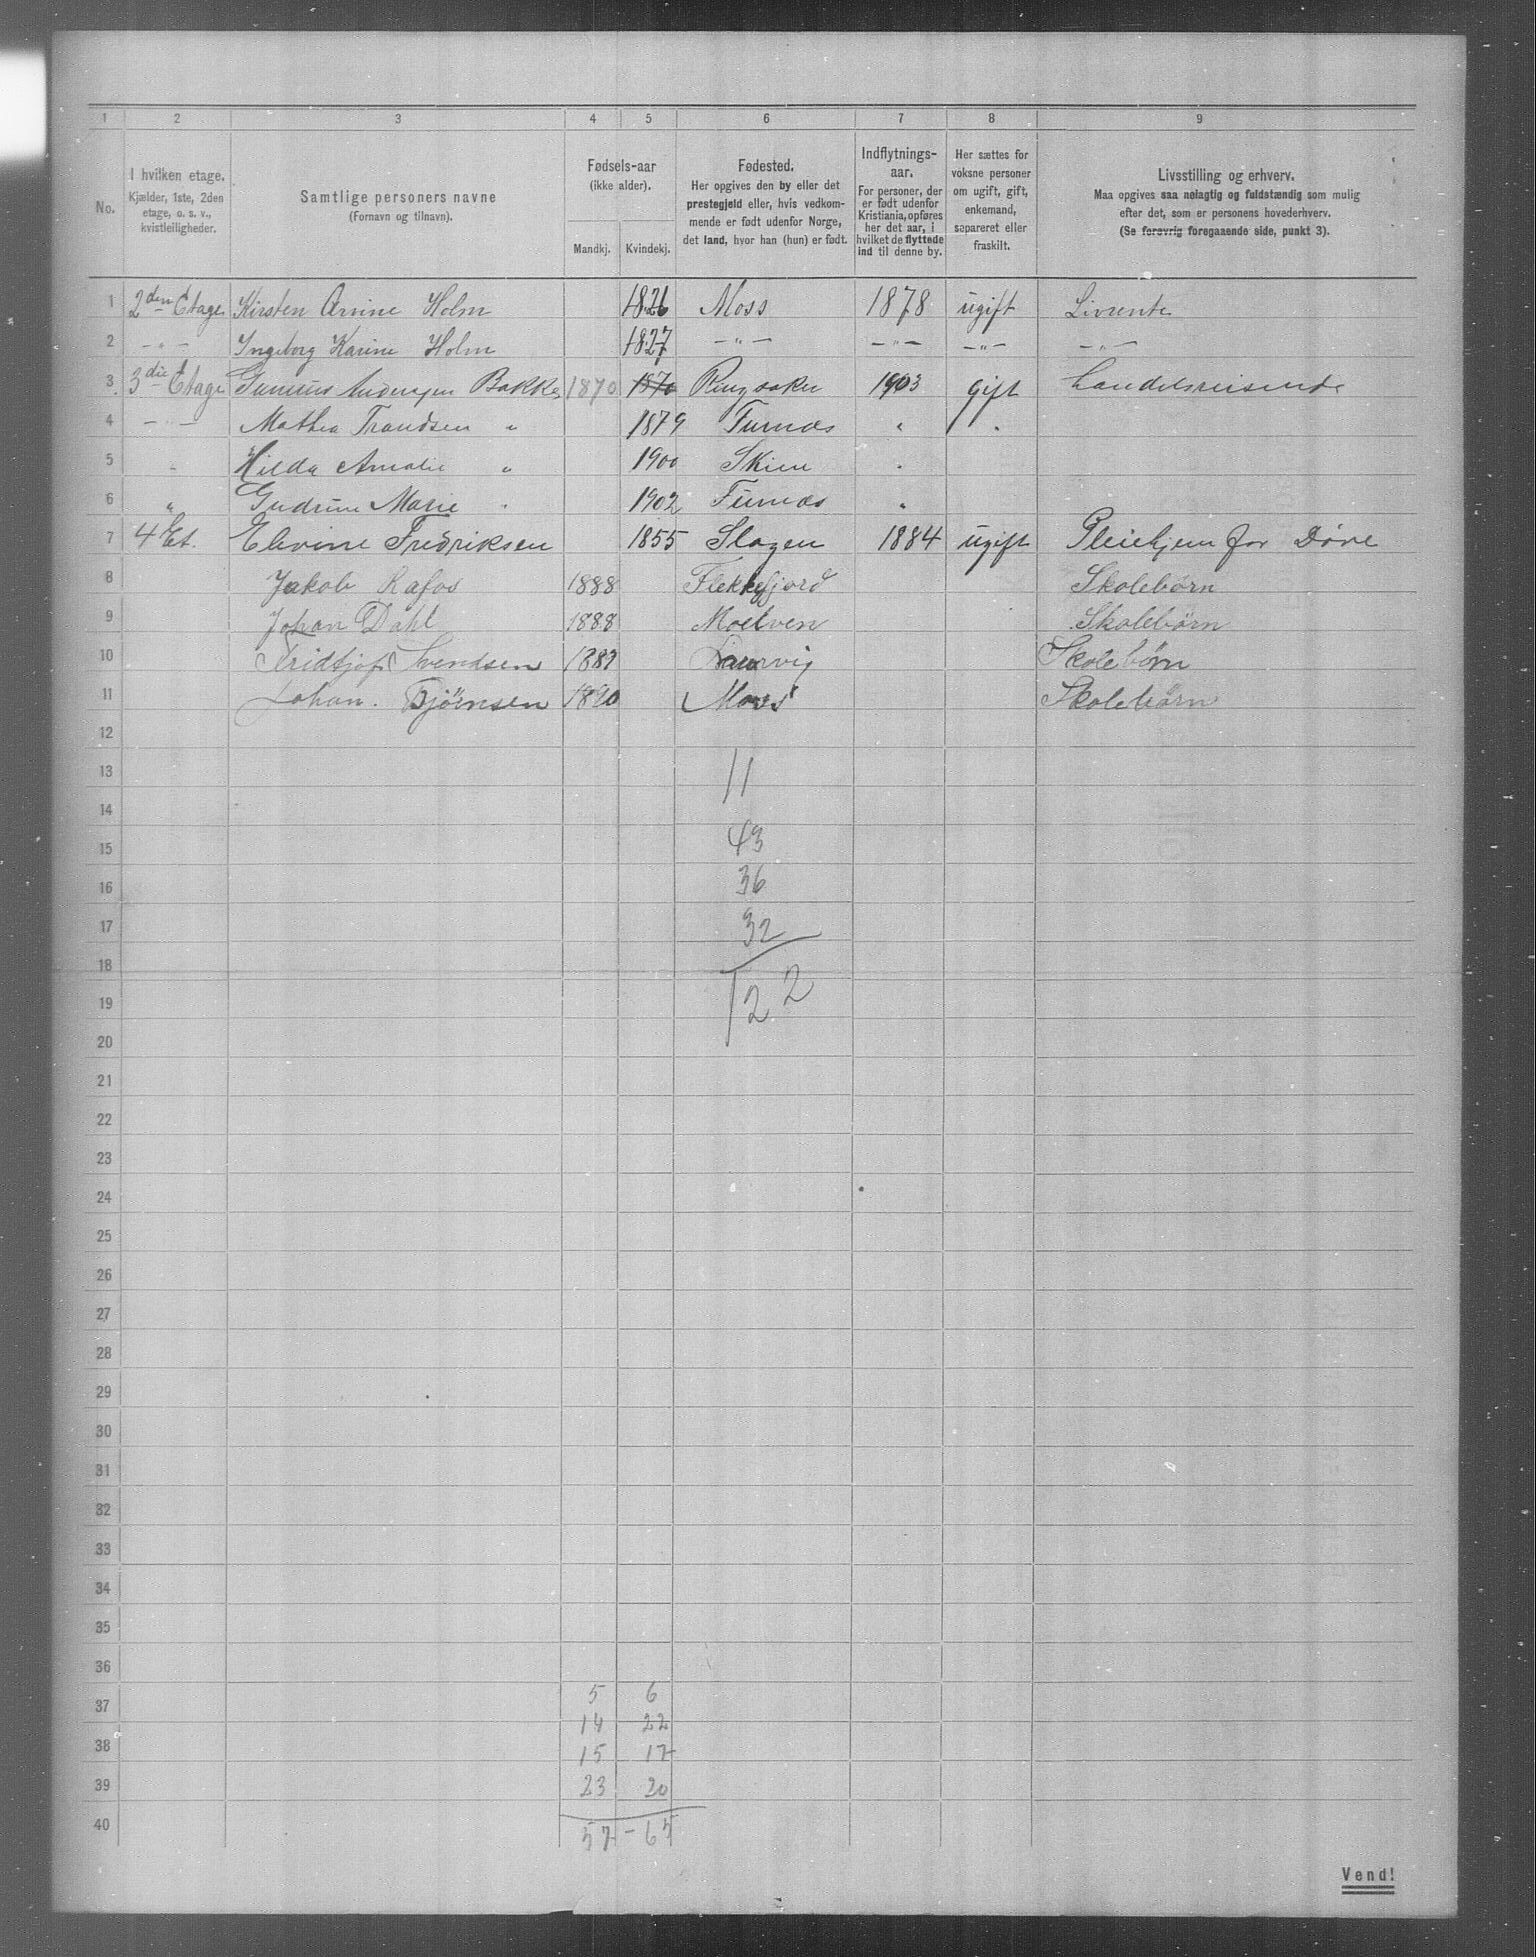 1 2 3 4 5 6 7 8 9
No.
I hvilken etage.
Kjælder, 1ste, 2den
etage, o. s. v.,
kvistleiligheder.
Samtlige personers navne
(Fornavn og tilnavn).
Fødsels-aar
(ikke alder).
Mandkj. Kvindekj.
Fødested.
Her opgives den by eller det
prestegjeld eller, hvis vedkom-
mende er født udenfor Norge,
det land, hvor han (hun) er født.
Indflytnings-
aar.
For personer, der
er født udenfor
Kristiania, opføres
her det aar, i
hvilket de flyttede
ind til denne by.
Her sættes for
voksne personer
om ugift, gift,
enkemand,
separeret eller
fraskilt.
Livsstilling og erhverv.
Maa opgives saa nøiagtig og fuldstændig som mulig
efter det, som er personens hovederhverv.
(Se forøvrig foregaaende side, punkt 3).
1 2den Etage Kirsten Arnine Holm 1826 Moss 1878 ugift Livrente
2 -"- Ingeborg Karine Holm 1827 -"- -"- -"- -"-
3 3die Etage Andersen Bakke 1870 1870 Ringsaker 1903 gift Handelsreisende
4 -"- Mathea Trondsen " 1879 Furnæs " "
5 " Hilda Amalie " 1900 Skien "
6 " Gudrun Marie " 1902 Furnæs "
7 4 Et. Elevine Fredriksen 1855 Slagen 1884 ugift Pleiehjem for Døve
8 Jakob Rafos 1888 Flekkefjord Skolebørn
9 Johan Dahl 1888 Moelven Skolebørn
10 Fridtjof Svendsen Laurvig Skolebørn
11 Johan. Bjørnsen 1890 Moss Skolebørn
12
13 11
14
15 43
16 36
17 32
18
19 122
20
21
22
23
24
25
26
27
28
29
30
31
32
33
34
35
36
37 5 6
14 22
38 15 17
39 23 20
40 57 - 65
Vend!